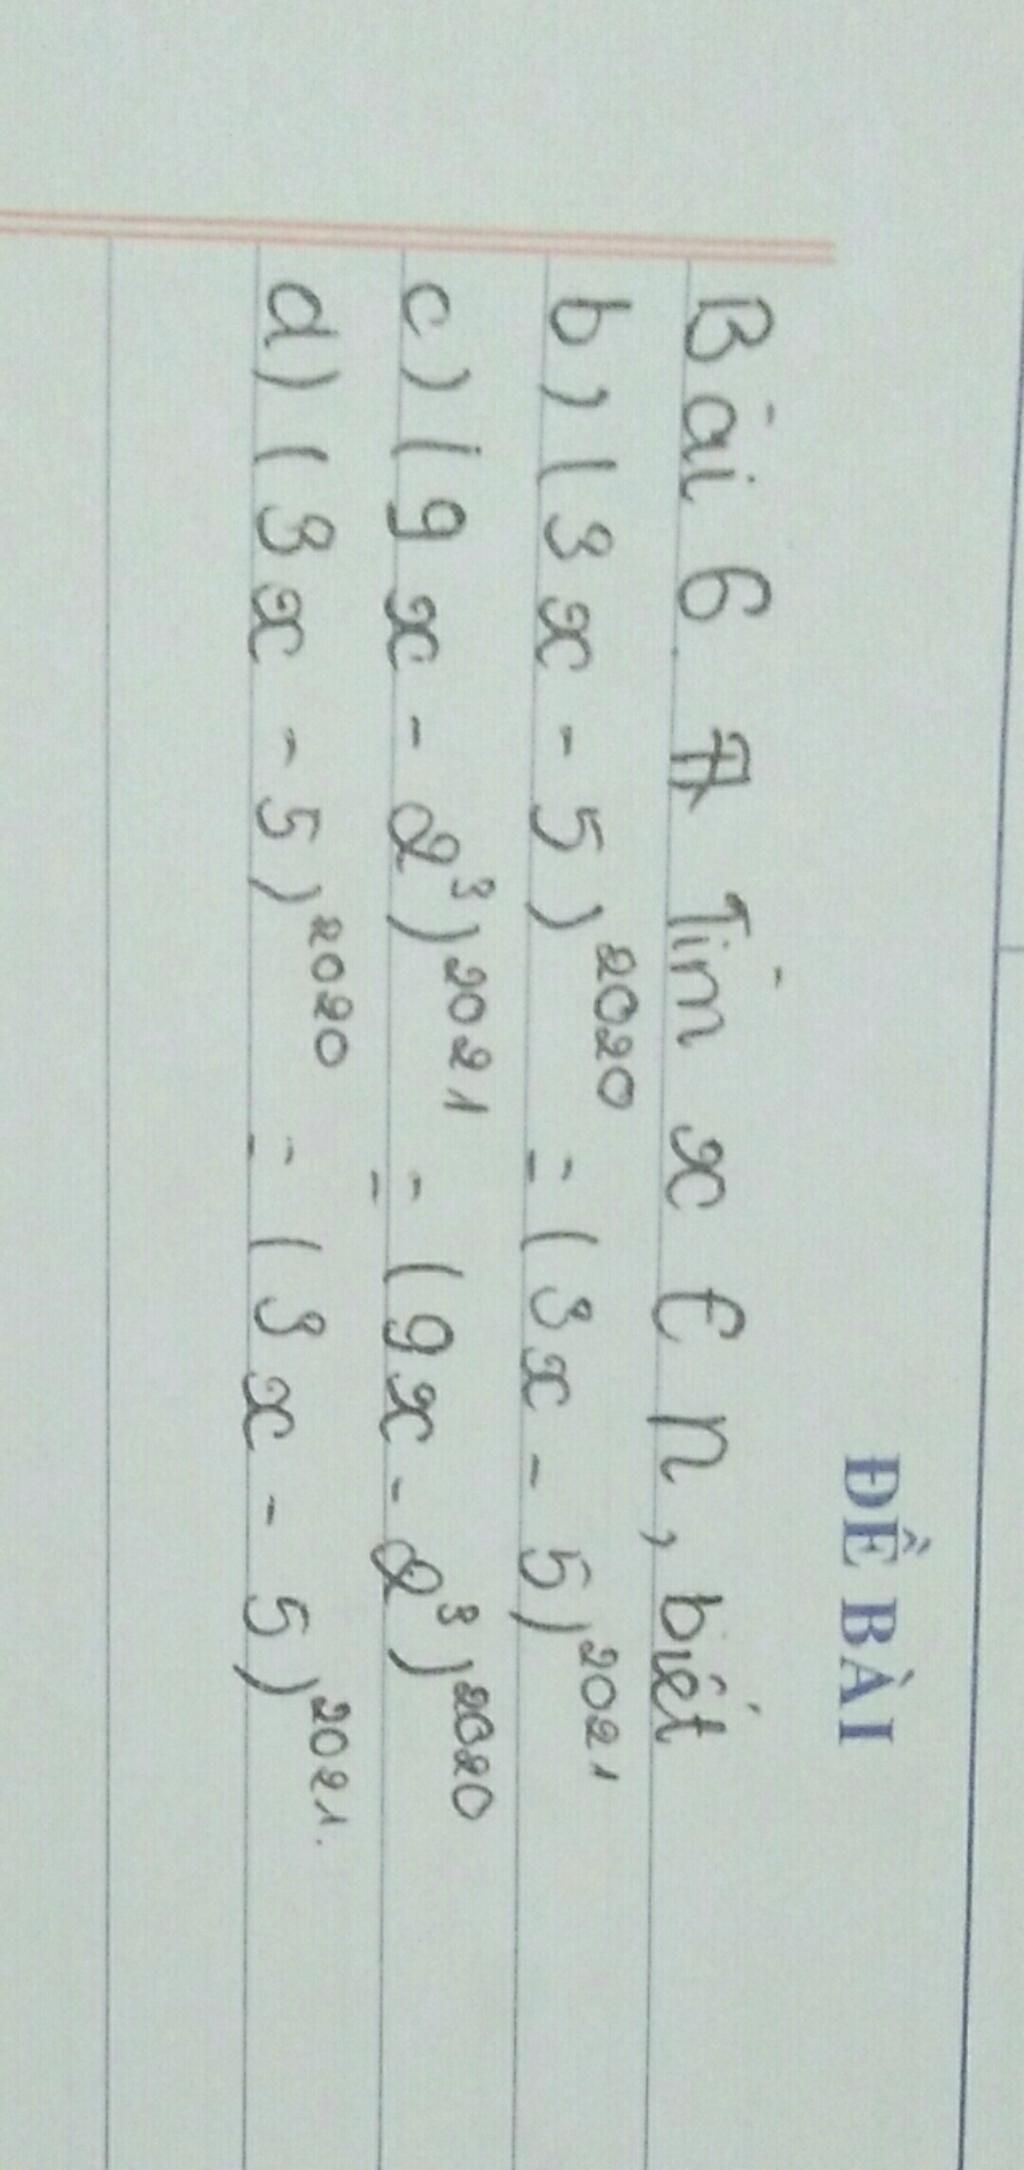 ĐỀ BÀI
Bài 6 Tìm x € n, biết
b) (3x - 5)²⁰²⁰ = (3x - 5)²⁰²¹
c) (9x - 2³)²⁰²¹ = (9x - 2³)²⁰²⁰
d) (3x - 5)²⁰²⁰ = (3x - 5)²⁰²¹.